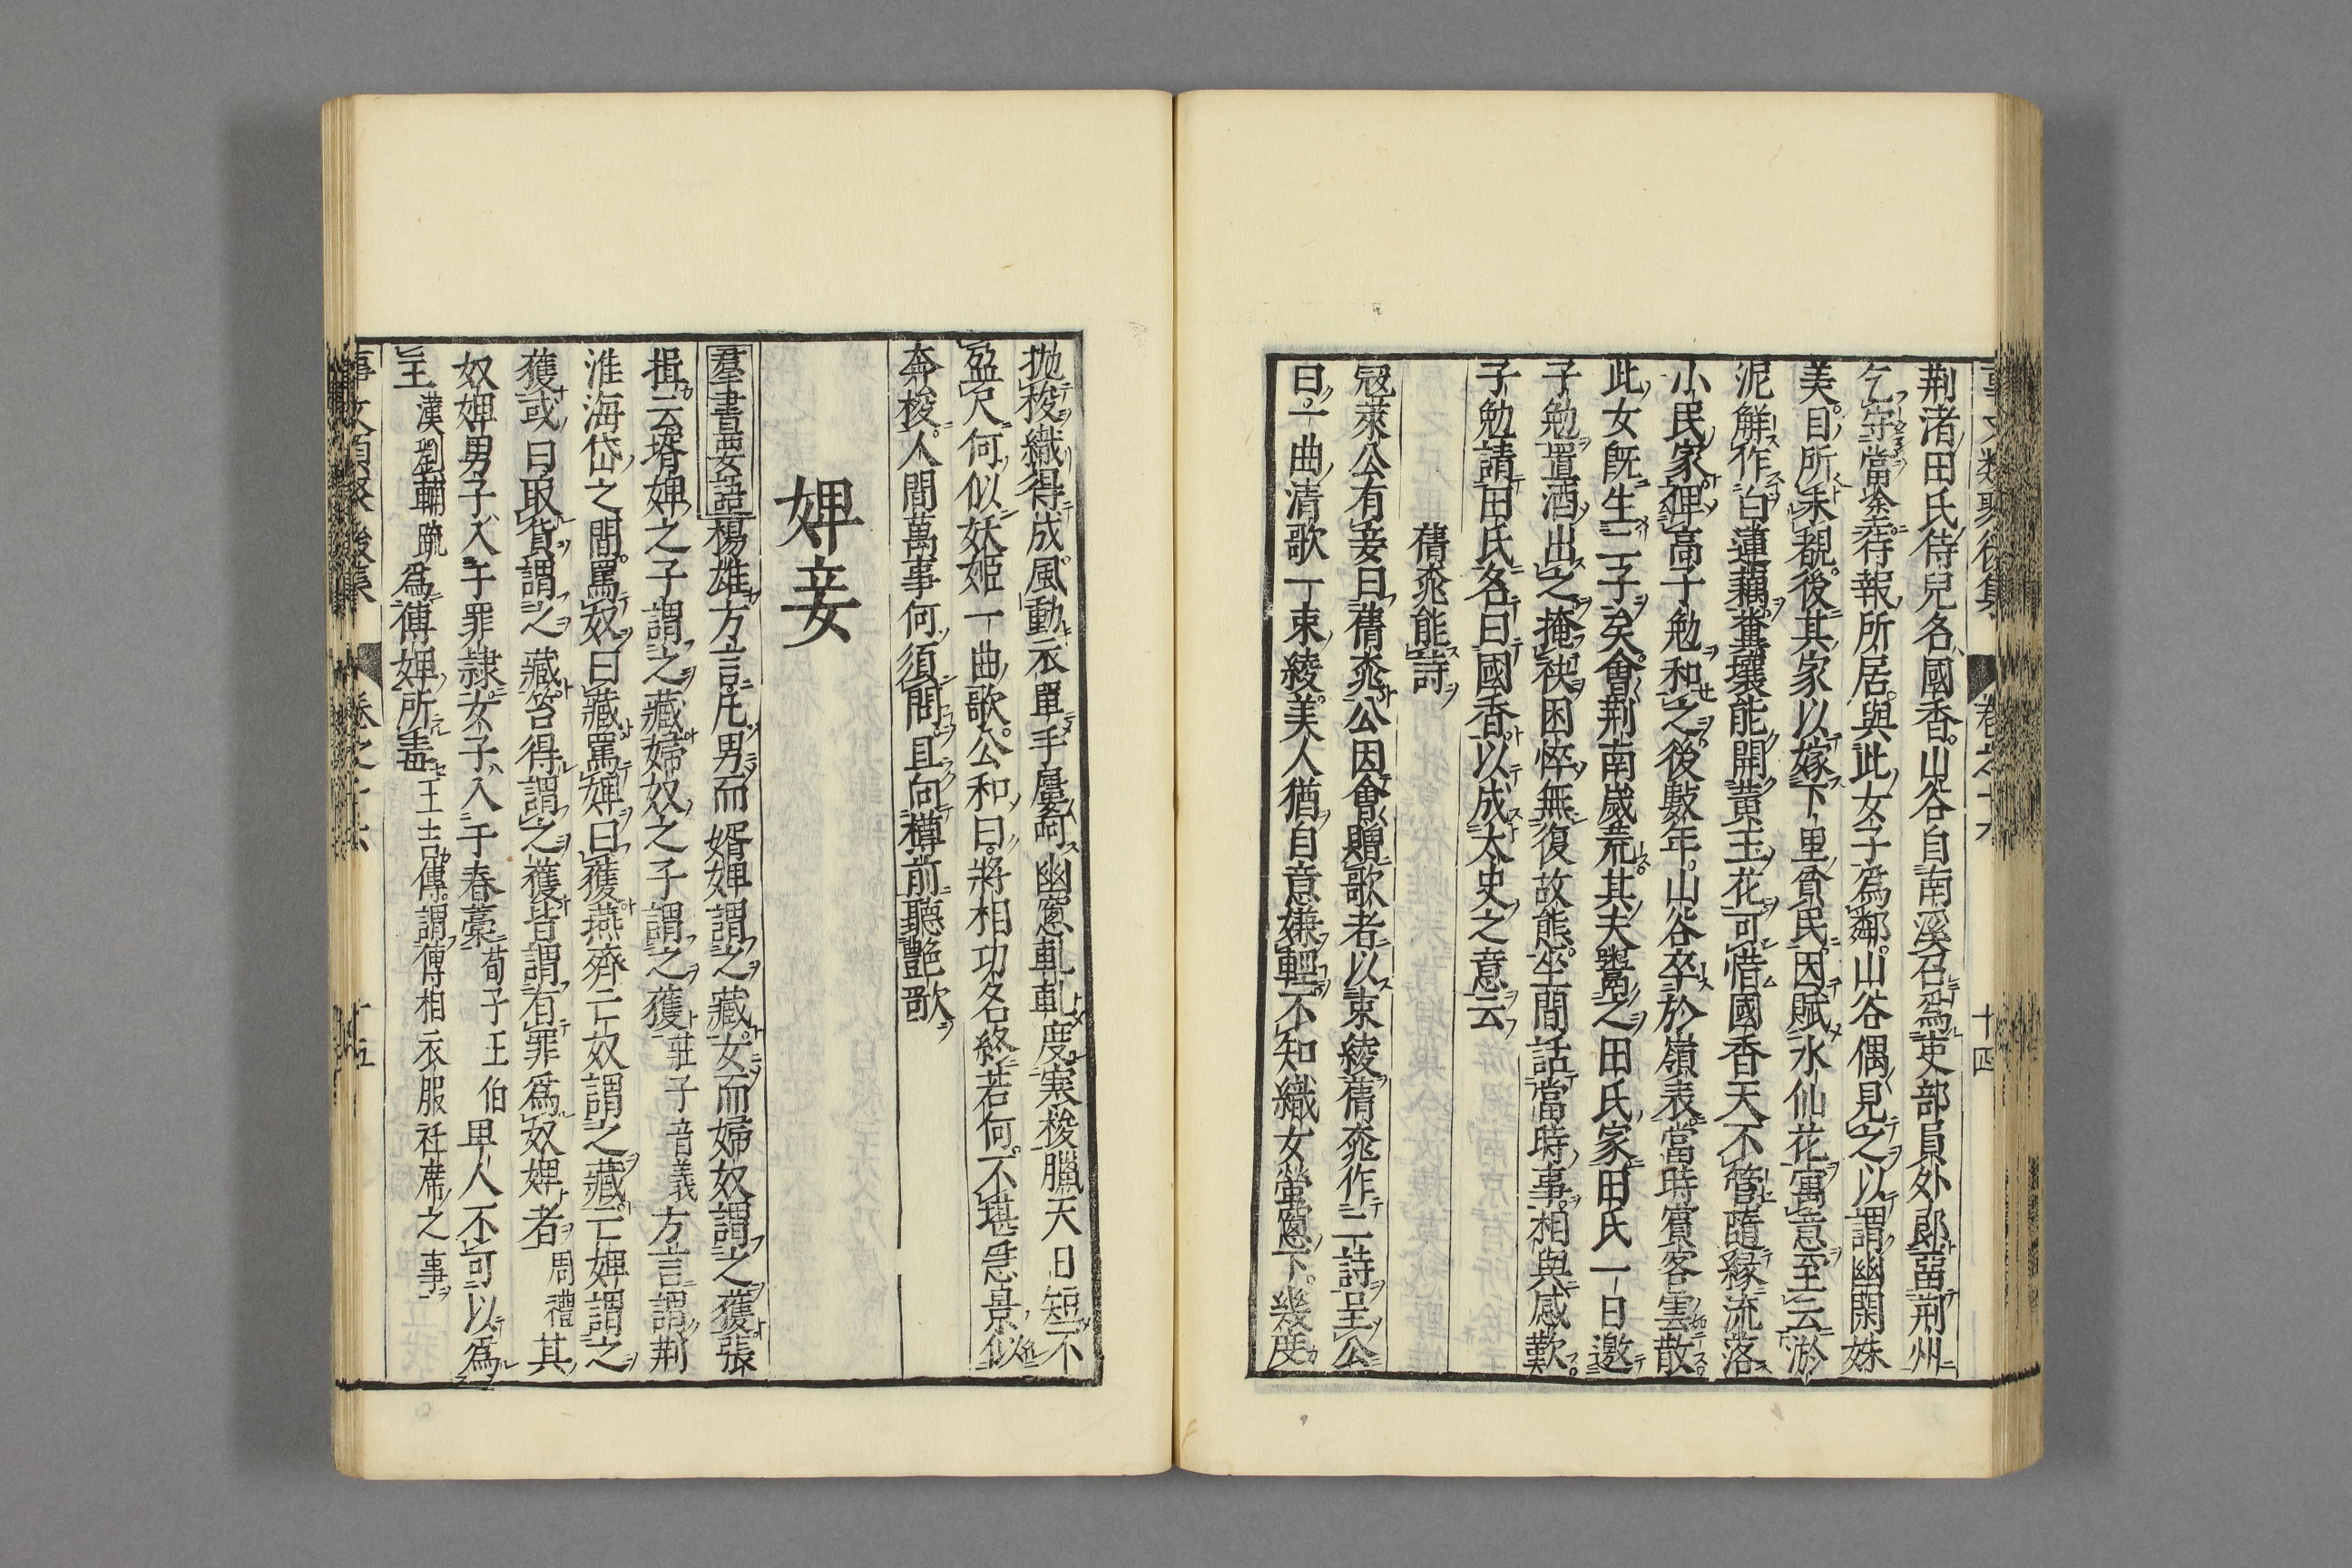 事文類聚後集 卷之十六 十四
荆渚田氏侍兒名國香山谷自南溪召爲吏部員外郎留荆州
乞守當塗待報所居與此女子爲鄰山谷偶見之以謂幽閑姝
美目所未覩後其家以嫁下里貧民因賦水仙花寓意至云淤
泥解作白蓮藕糞壤能開黄玉花可惜國香天不管隨緣流落
小民家俾高子勉和之後數年山谷卒於嶺表當時賓客雲散
此女既生二子矣會荆南歲荒其夫鬻之田氏家田氏一日邀
子勉置酒出之掩袂困悴無復故態坐間話當時事相與感歎
子勉請田氏名曰國香以成太史之意云
蒨桃能詩
冦萊公有妾曰蒨桃公因會贈歌者以束綾蒨桃作二詩呈公
曰一曲清歌一束綾美人猶自意嫌輕不知織女螢窻下幾度
抛梭織得成風動衣單手屢呵幽窻軋軋度寒梭臘天日短不
盈尺何似妖姬一曲歌公和曰將相功名終若何不堪急景似
奔梭人間萬事何須問且向樽前聽艶歌
婢妾
羣書要語楊雄方言凡男而婿婢謂之藏女而婦奴謂之獲張
揖云壻婢之子謂之藏婦奴之子謂之獲莊子音義方言謂荆
淮海岱之間罵奴曰藏罵婢曰獲燕齊亡奴謂之藏亡婢謂之
獲或曰取貨謂之藏笞得謂之獲皆謂有罪爲奴婢者周禮其
奴婢男子入于罪隷女子入于舂藁荀子王伯卑人不可以爲
主漢劉輔䟽爲傅婢所毒王吉傳謂傅相衣服衽席之事
事文類聚後集 卷之十六 十五